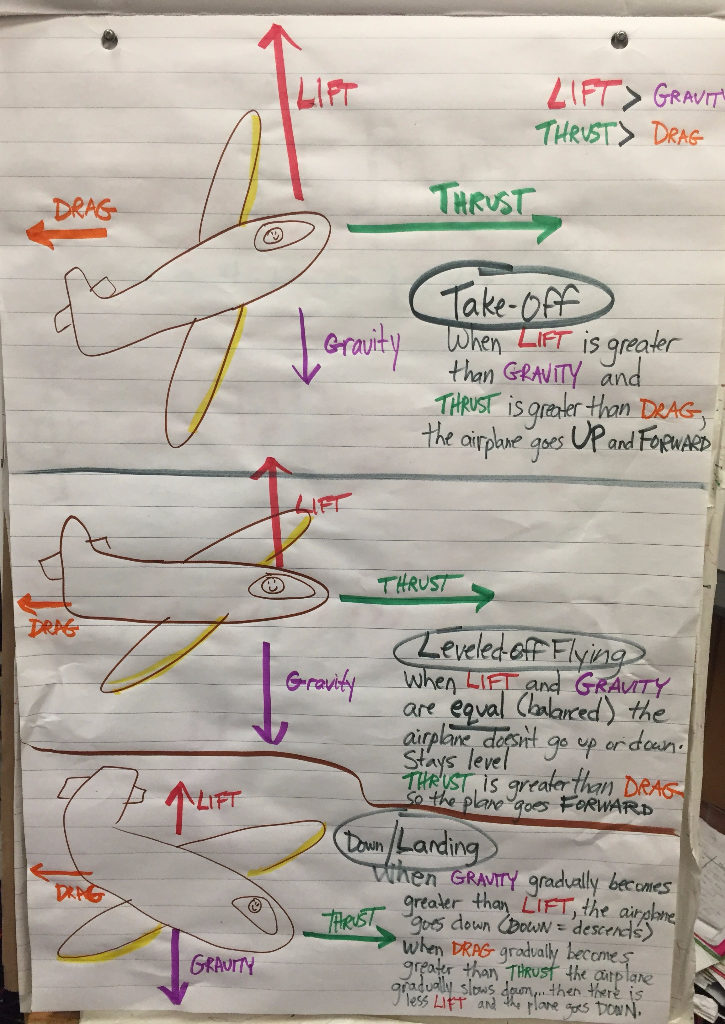 LIFT
LIFT > GRAVITY
THRUST > DRAG
DRAG
THRUST
Gravity
Take-Off
When LIFT is greater
than GRAVITY and
THRUST is greater than DRAG,
the airplane goes UP and FORWARD
LIFT
THRUST
DRAG
Gravity
Leveled-off Flying
When LIFT and GRAVITY
are equal (balanced) the
airplane doesn't go up or down.
Stays level
THRUST is greater than DRAG
so the plane goes FORWARD
LIFT
DRAG
THRUST
GRAVITY
Down/Landing
When GRAVITY gradually becomes
greater than LIFT, the airplane
goes down (DOWN = descends)
When DRAG gradually becomes
greater than THRUST the airplane
gradually slows down... then there is
less LIFT and the plane goes DOWN.